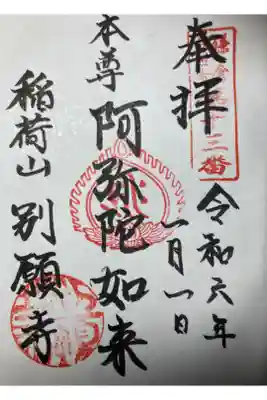 奉拝
令和六年
一月一日
本尊
阿弥陀如来
稲荷山
別願寺